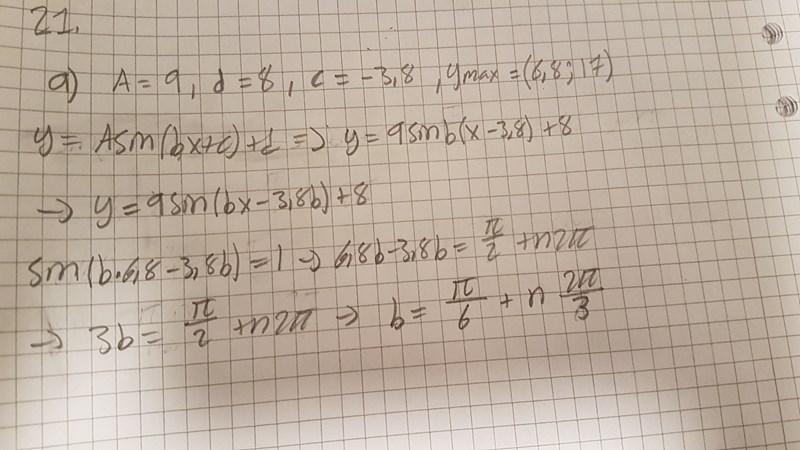 21.
a) A = 9, d = 8, c = -3,8, ymax = (6,8; 17)
y = Asin(bx+c)+d => y = 9sinb(x-3,8)+8
→ y = 9sin(bx-3,8b)+8
sin(b·6,8-3,8b) = 1 → 6,8b-3,8b = π/2 + n2π
→ 3b = π/2 + n2π → b = π/6 + n 2π/3